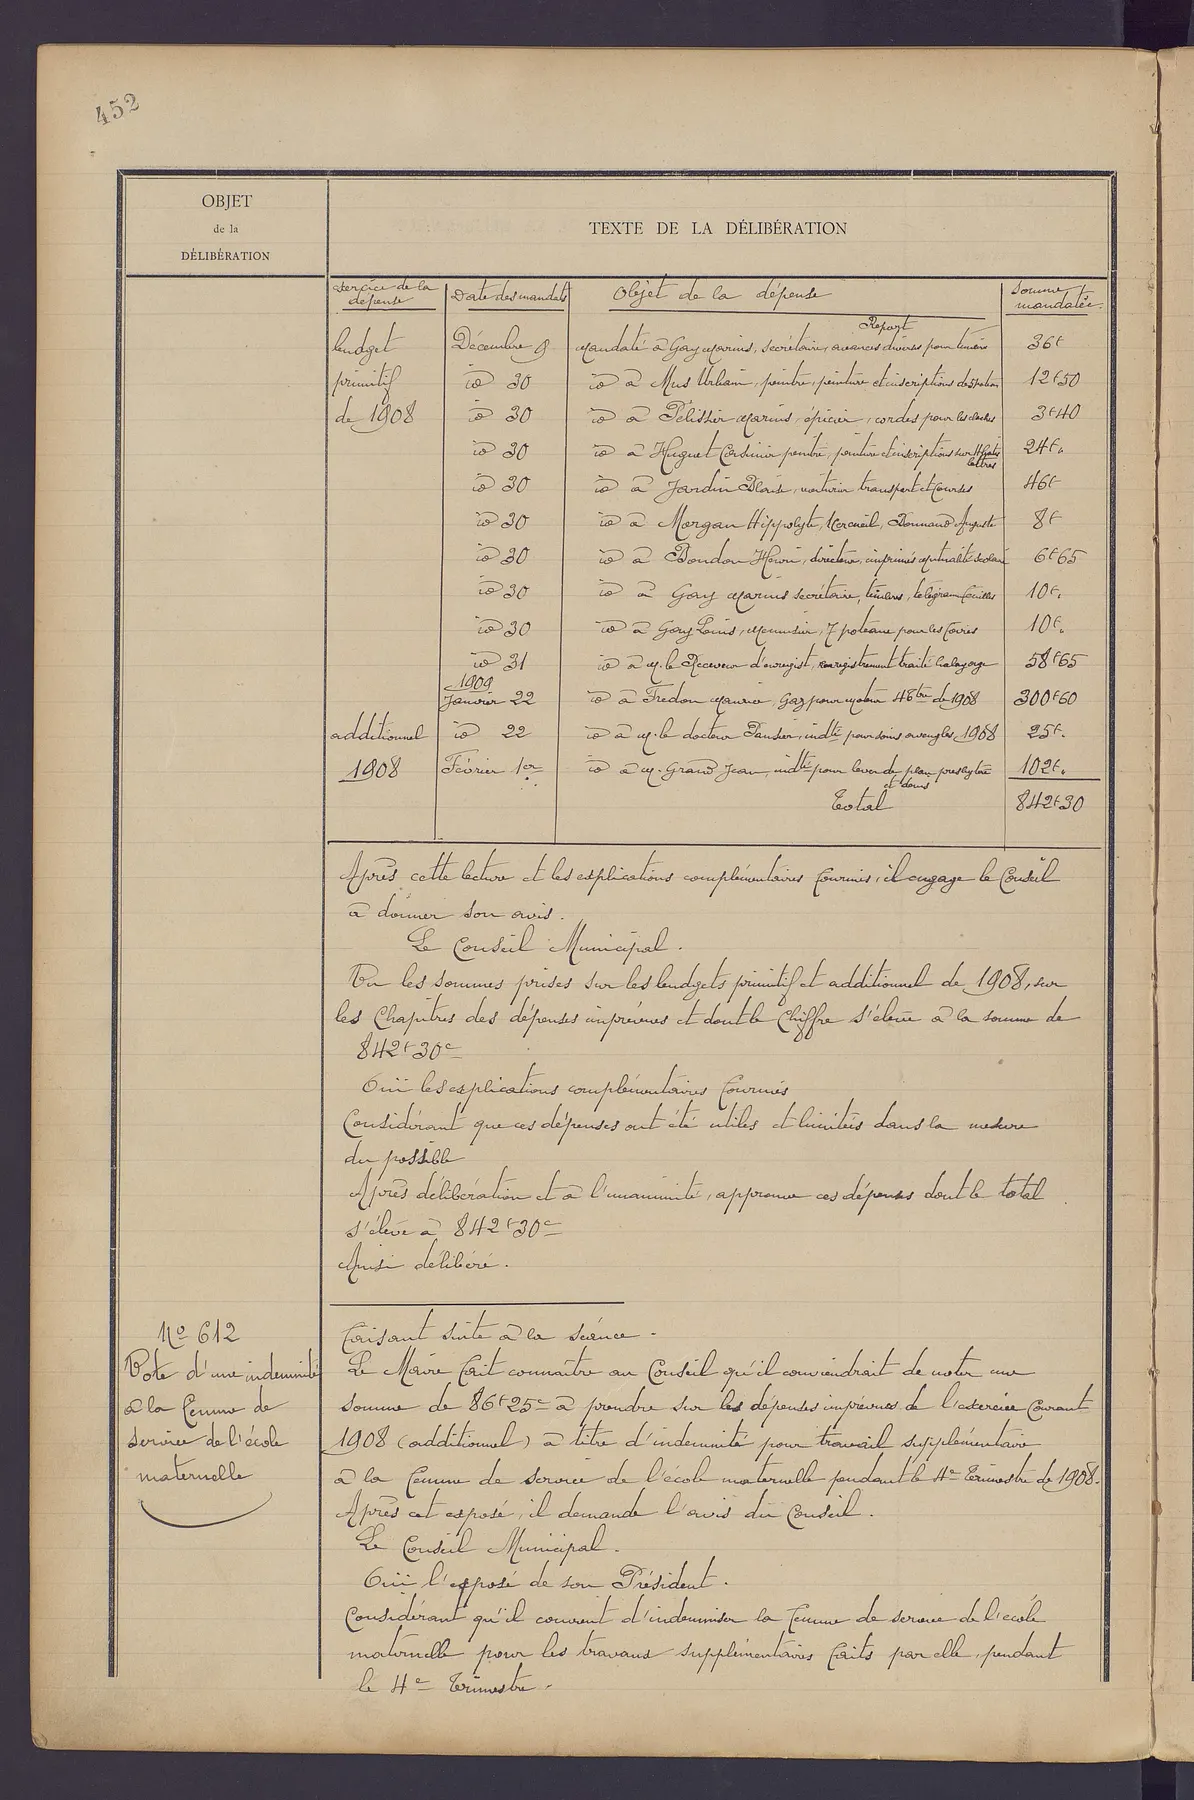 452
OBJET
de la
DÉLIBÉRATION
TEXTE DE LA DÉLIBÉRATION
Service de la dépense | Date des mandats | Objet de la dépense | Somme mandatée
Report
budget | Décembre 9 | Mandaté à Gay Marius, secrétaire, avances diverses pour timbres | 36f
primitif | id 30 | id à Mus Urbain, peintre, peinture et inscriptions | 12f50
de 1908 | id 30 | id à Pélissier Marius, épicier, cordes pour les cloches | 3f40
id 30 | id à Huguet Casimir peintre, peinture et inscriptions sur lettres | 24f"
id 30 | id à Jardin Blaise, voiturier transport et courses | 46f
id 30 | id à Morgan Hippolyte, 1 cercueil, Bonnaud Auguste | 8f
id 30 | id à Boudon Henri, directeur, imprimés mutualité scolaire | 6f65
id 30 | id à Gay Marius secrétaire, timbres, télégram | 10f"
id 30 | id à Gay Louis, menuisier, 7 poteaux pour les | 10f"
id 31 | id à M. le Receveur d'enregist, enregistrement traité balayage | 58f65
1909
Janvier 22 | id à Fredon Maurice, Gaz pour moteur 4e tre de 1908 | 300f60
additionnel | id 22 | id à M. le docteur Pansier, indté pour soins aveugles 1908 | 25f.
1908 | Février 1er | id à M. Grand Jean, indté pour lever de plan presbytère | 102f"
et devis
Total | 842f30
Après cette lecture et les explications complémentaires fournies, il engage le Conseil
à donner son avis.
Le Conseil Municipal.
Vu les sommes prises sur les budgets primitif et additionnel de 1908, sur
les chapitres des dépenses imprévues et dont le chiffre s'élève à la somme de
842f30c
Ouï les explications complémentaires fournies
Considérant que ces dépenses ont été utiles et limitées dans la mesure
du possible
Après délibération et à l'unanimité, approuve ces dépenses dont le total
s'élève à 842f30c
Ainsi délibéré.
No 612
Vote d'une indemnité
à la femme de
service de l'école
maternelle
Faisant suite à la séance.
Le Maire fait connaître au Conseil qu'il conviendrait de voter une
somme de 86f25c à prendre sur les dépenses imprévues de l'exercice courant
1908 (additionnel) à titre d'indemnité pour travail supplémentaire
à la femme de service de l'école maternelle pendant le 4e Trimestre de 1908.
Après cet exposé, il demande l'avis du Conseil.
Le Conseil Municipal.
Ouï l'exposé de son Président.
Considérant qu'il convient d'indemniser la femme de service de l'école
maternelle pour les travaux supplémentaires faits par elle, pendant
le 4e Trimestre.